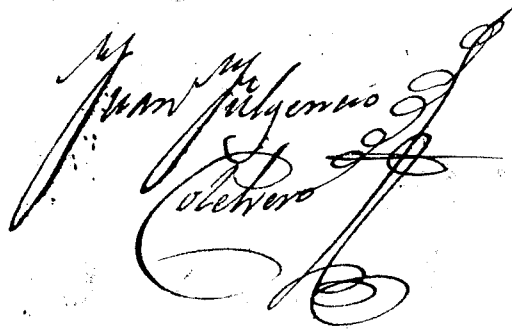 Juan Fulgencio
Colchero